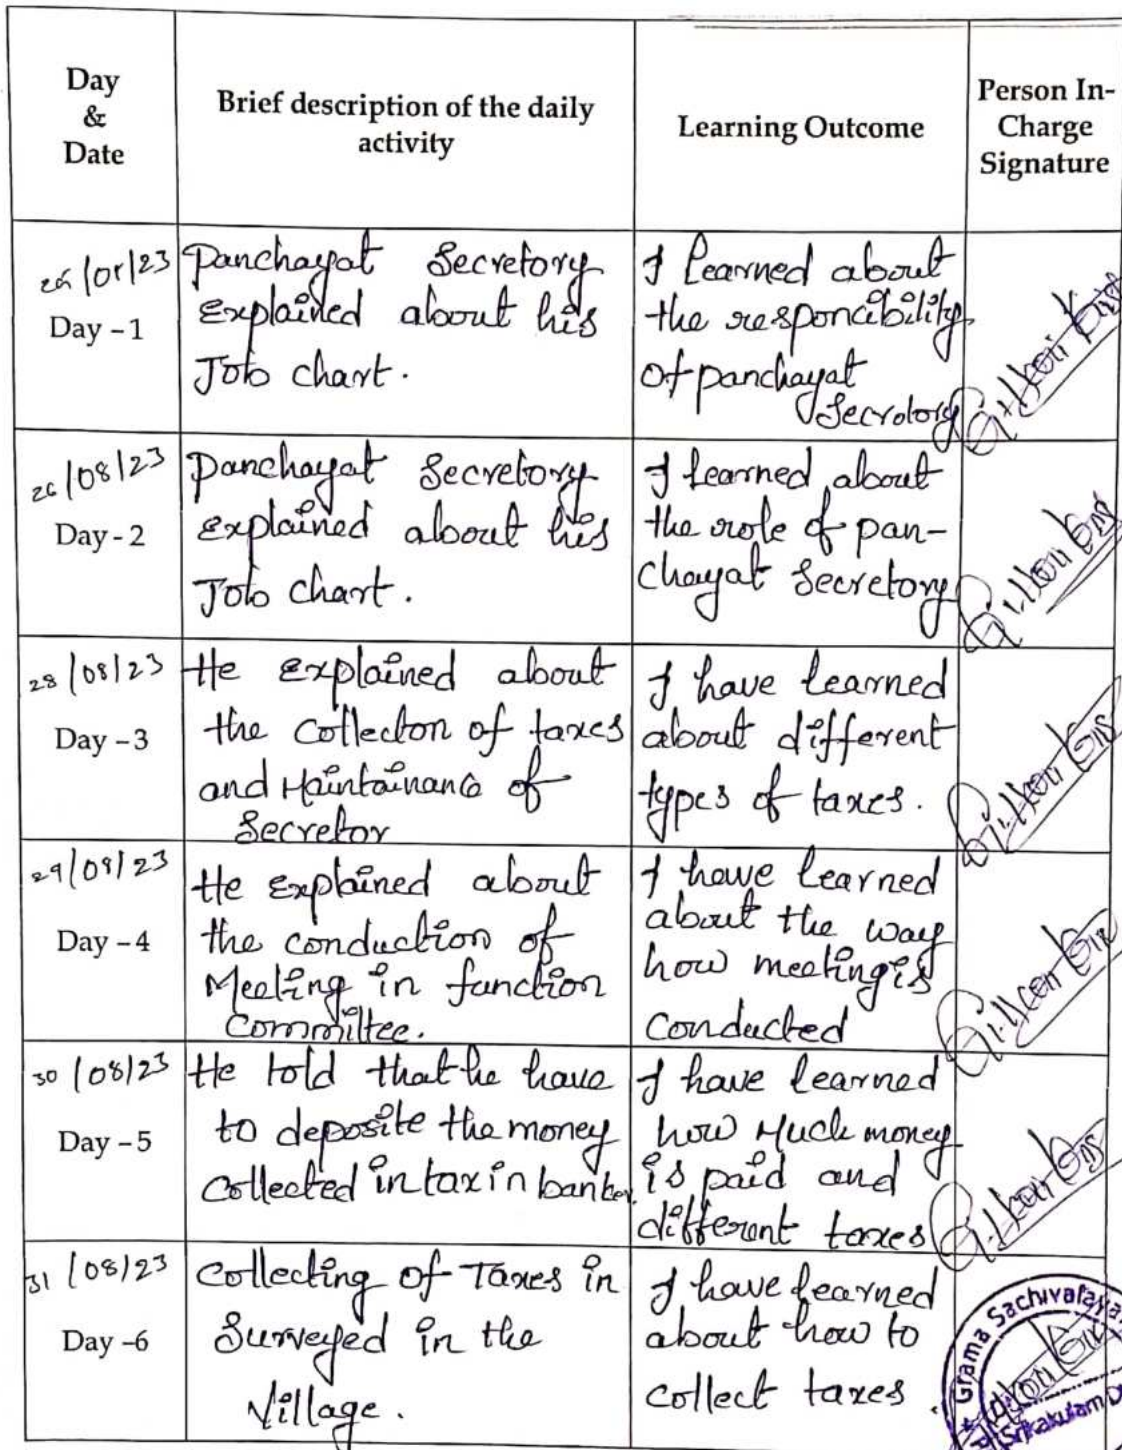 Day
&
Date
Brief description of the daily
activity
Learning Outcome
Person In-
Charge
Signature
/23
Day - 1
Panchayat Secretory
Explained about his
Job chart.
I learned about
the responcibility
of panchayat
26/08/23
Day - 2
Panchayat Secretory
explained about his
Job chart.
I learned about
the role of pan-
chayat Secretory
28/08/23
Day - 3
He explained about
the collecton of taxes
and Maintainance of
Secretor
I have learned
about different
types of taxes.
29/08/23
Day - 4
He explained about
the conduction of
Meeting in function
Committee.
I have learned
about the way
how meeting is
conducted
30/08/23
Day - 5
He told that he have
to deposite the money
collected in tax in
I have learned
how Much money
is paid and
different taxes
31/08/23
Day - 6
Collecting of Taxes in
Surveyed in the
Village.
I have learned
about how to
collect taxes.
Grama Sachivalaya
Srikakulam D